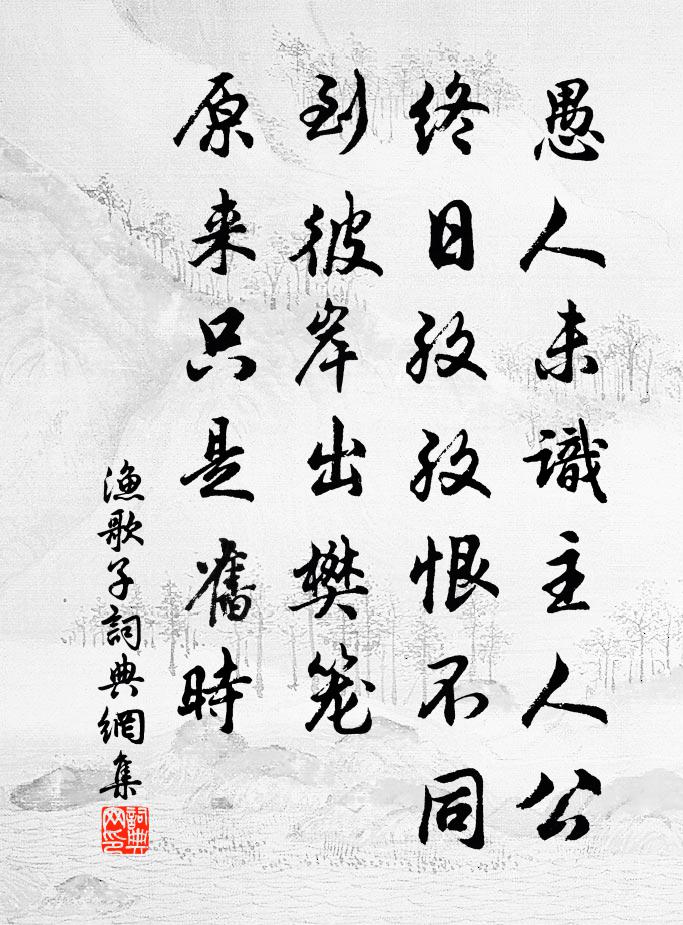 愚人未識主人公
終日孜孜恨不同
到彼岸出樊笼
原来只是舊時
漁歌子詞典網集
詞典
网印